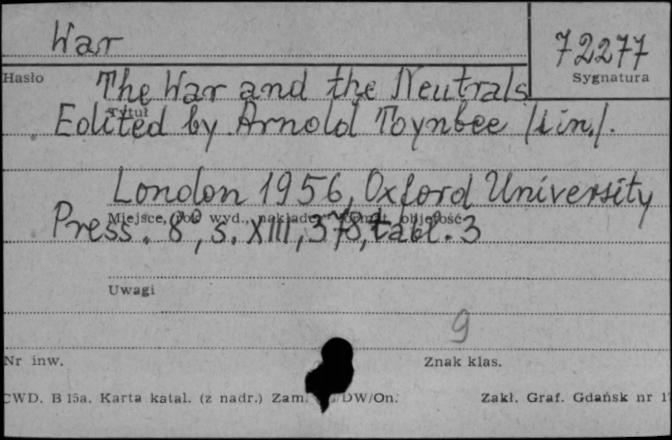 War
72277
Hasło
Sygnatura
The War and the Neutrals
Tytuł
Edited by Arnold Toynbee /iin./.
London 1956, Oxford University
Miejsce, rok wyd., nakładca, format, objętość
Press. 8°, s. XIII, 378, tabl. 3
Uwagi
9
Nr inw.
Znak klas.
CWD. B 15a. Karta katal. (z nadr.) Zam. /DW/On.
Zakł. Graf. Gdańsk nr